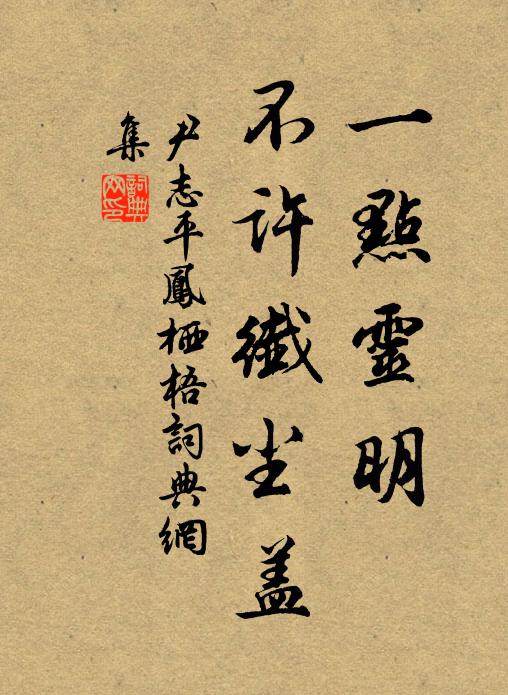 一點靈明
不許纖尘盖
尹志平鳳栖梧詞典網
集
詞典网印